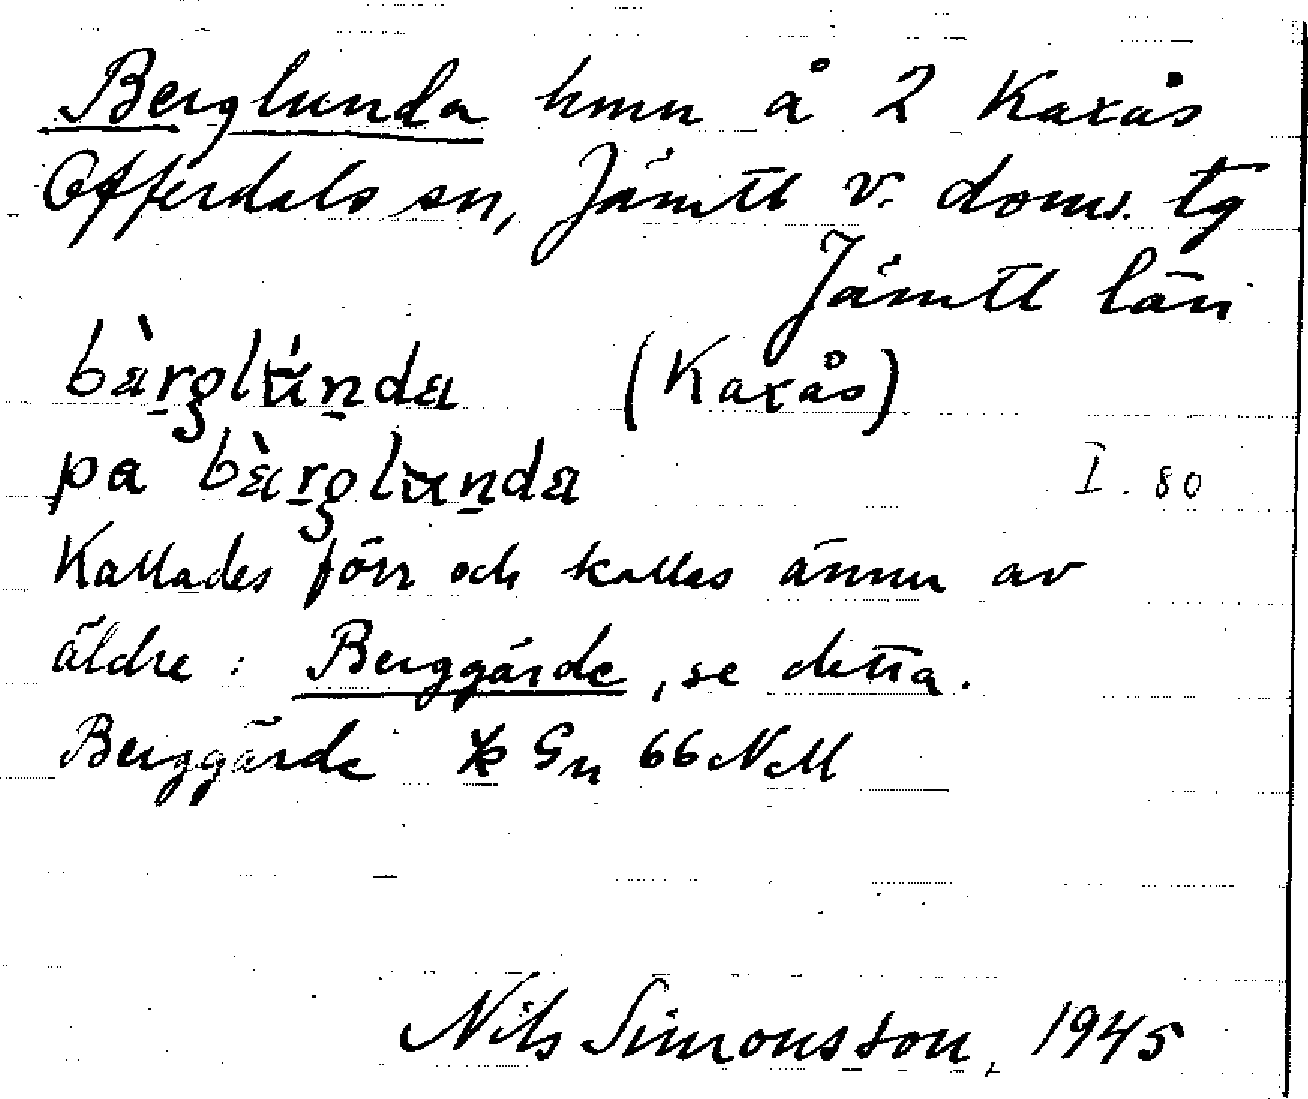 Berglunda hmn å 2 Kaxås
Offerdals sn, Jämtl v. doms. tg
Jämtl län
bàrglúnda (Kaxås)
pa bàrglunda I. 80
Kallades förr och kallas ännu av
äldre : Berggärde, se detta.
Berggärde Gn 66 NM
Nils Simonsson, 1945